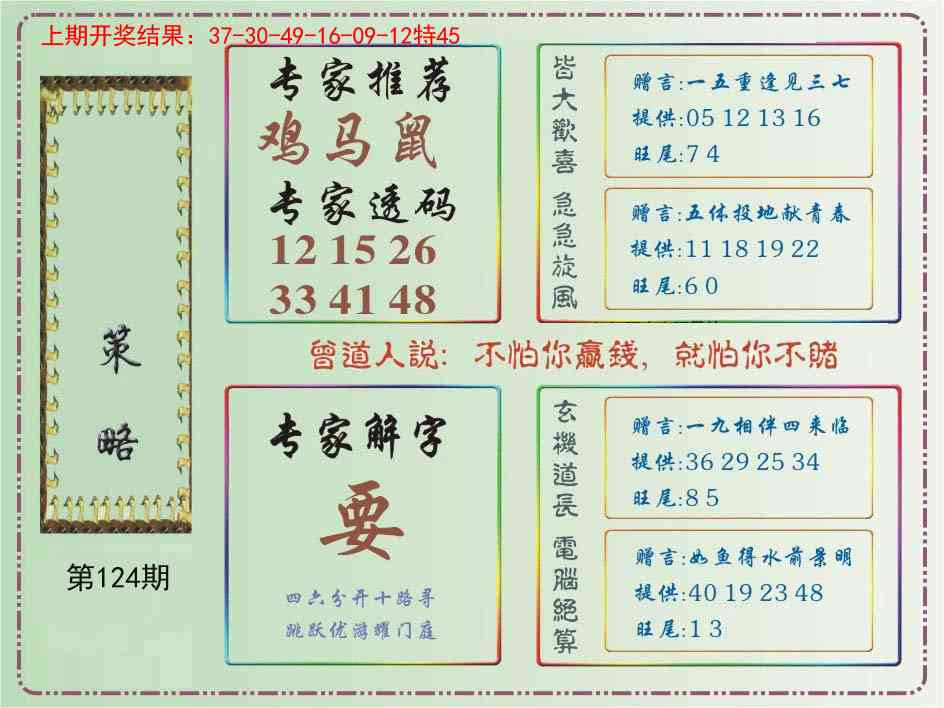 上期开奖结果：37-30-49-16-09-12特45
策略
第124期
专家推荐
鸡马鼠
专家透码
12 15 26
33 41 48
皆大歡喜
赠言:一五重逢见三七
提供:05 12 13 16
旺尾:7 4
急急旋風
赠言:五体投地献青春
提供:11 18 19 22
旺尾:6 0
曾道人説：不怕你贏錢，就怕你不賭
专家解字
要
四六分开十路寻
跳跃优游耀门庭
玄機道長
赠言:一九相伴四来临
提供:36 29 25 34
旺尾:8 5
電腦絕算
赠言:如鱼得水前景明
提供:40 19 23 48
旺尾:1 3